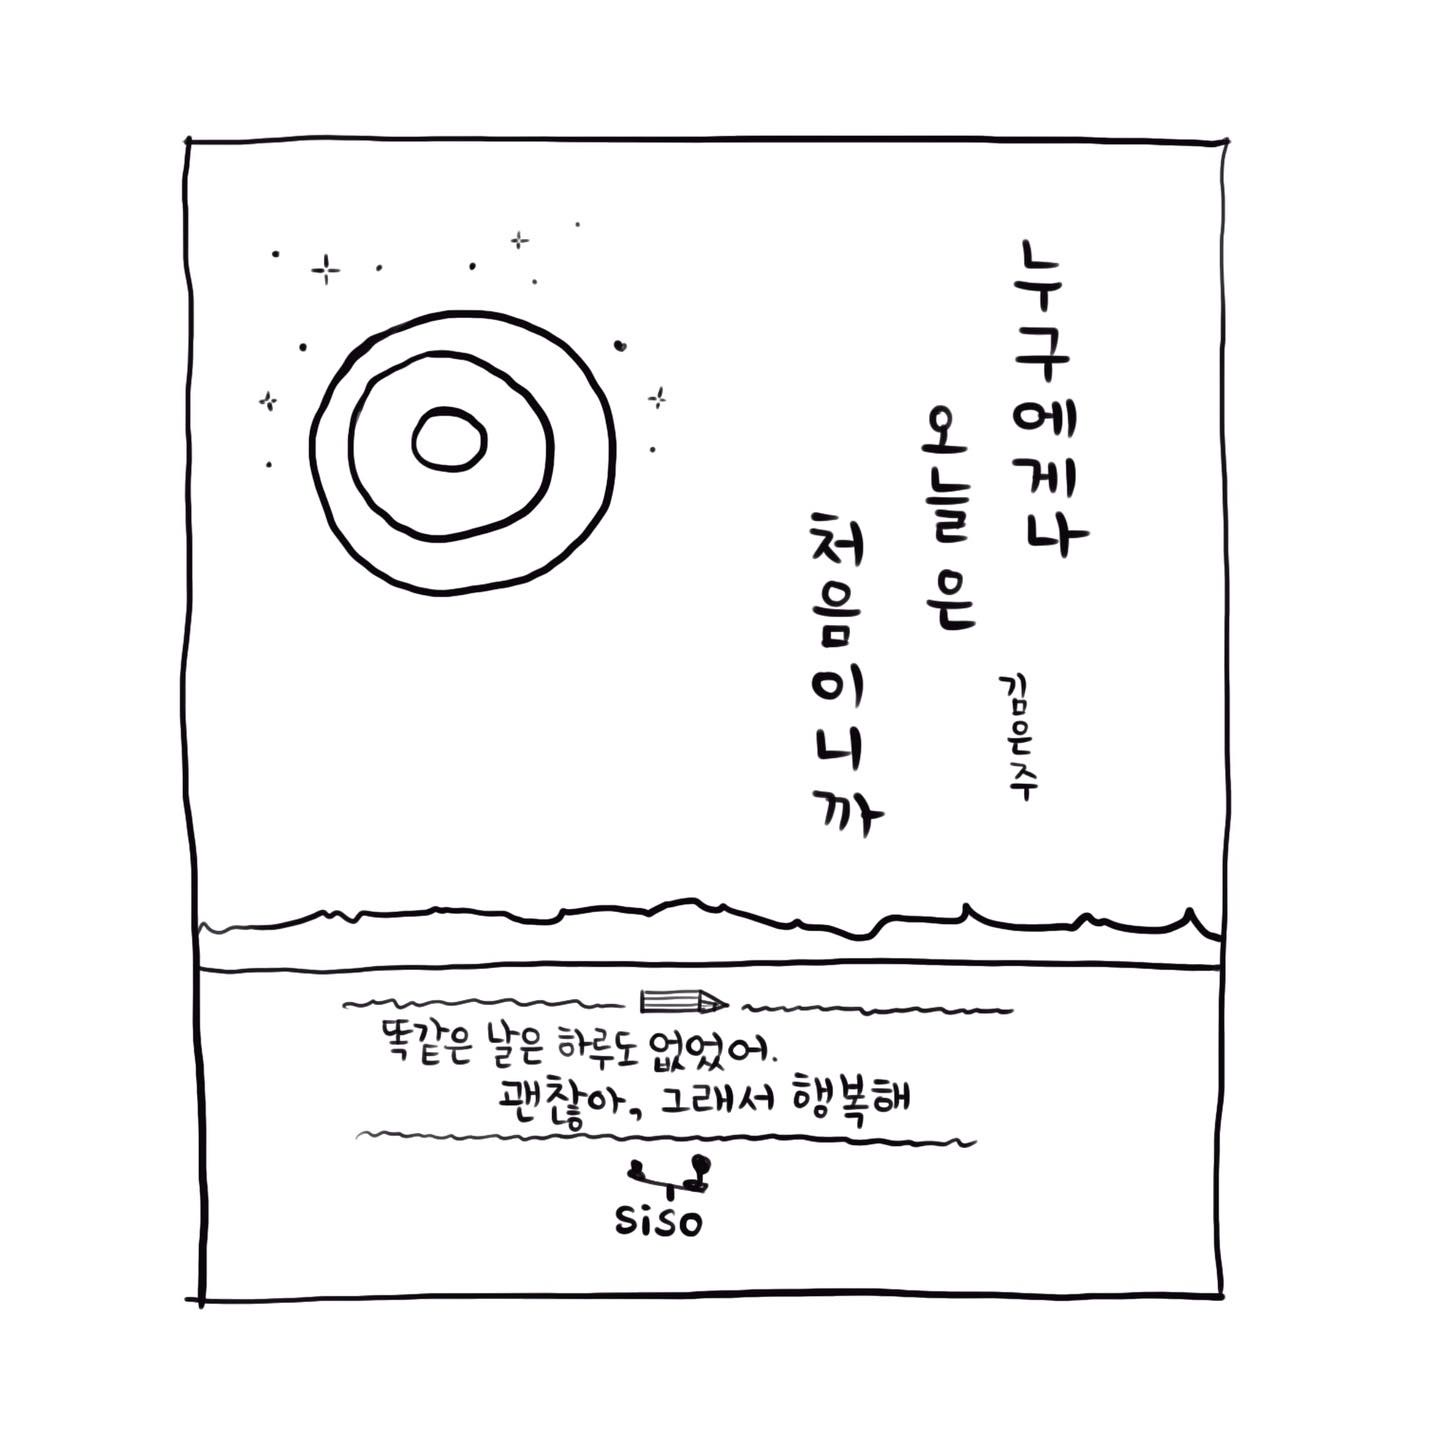 누구에게나
오늘은
처음이니까
김은주
똑같은 날은 하루도 없었어.
괜찮아, 그래서 행복해
siso